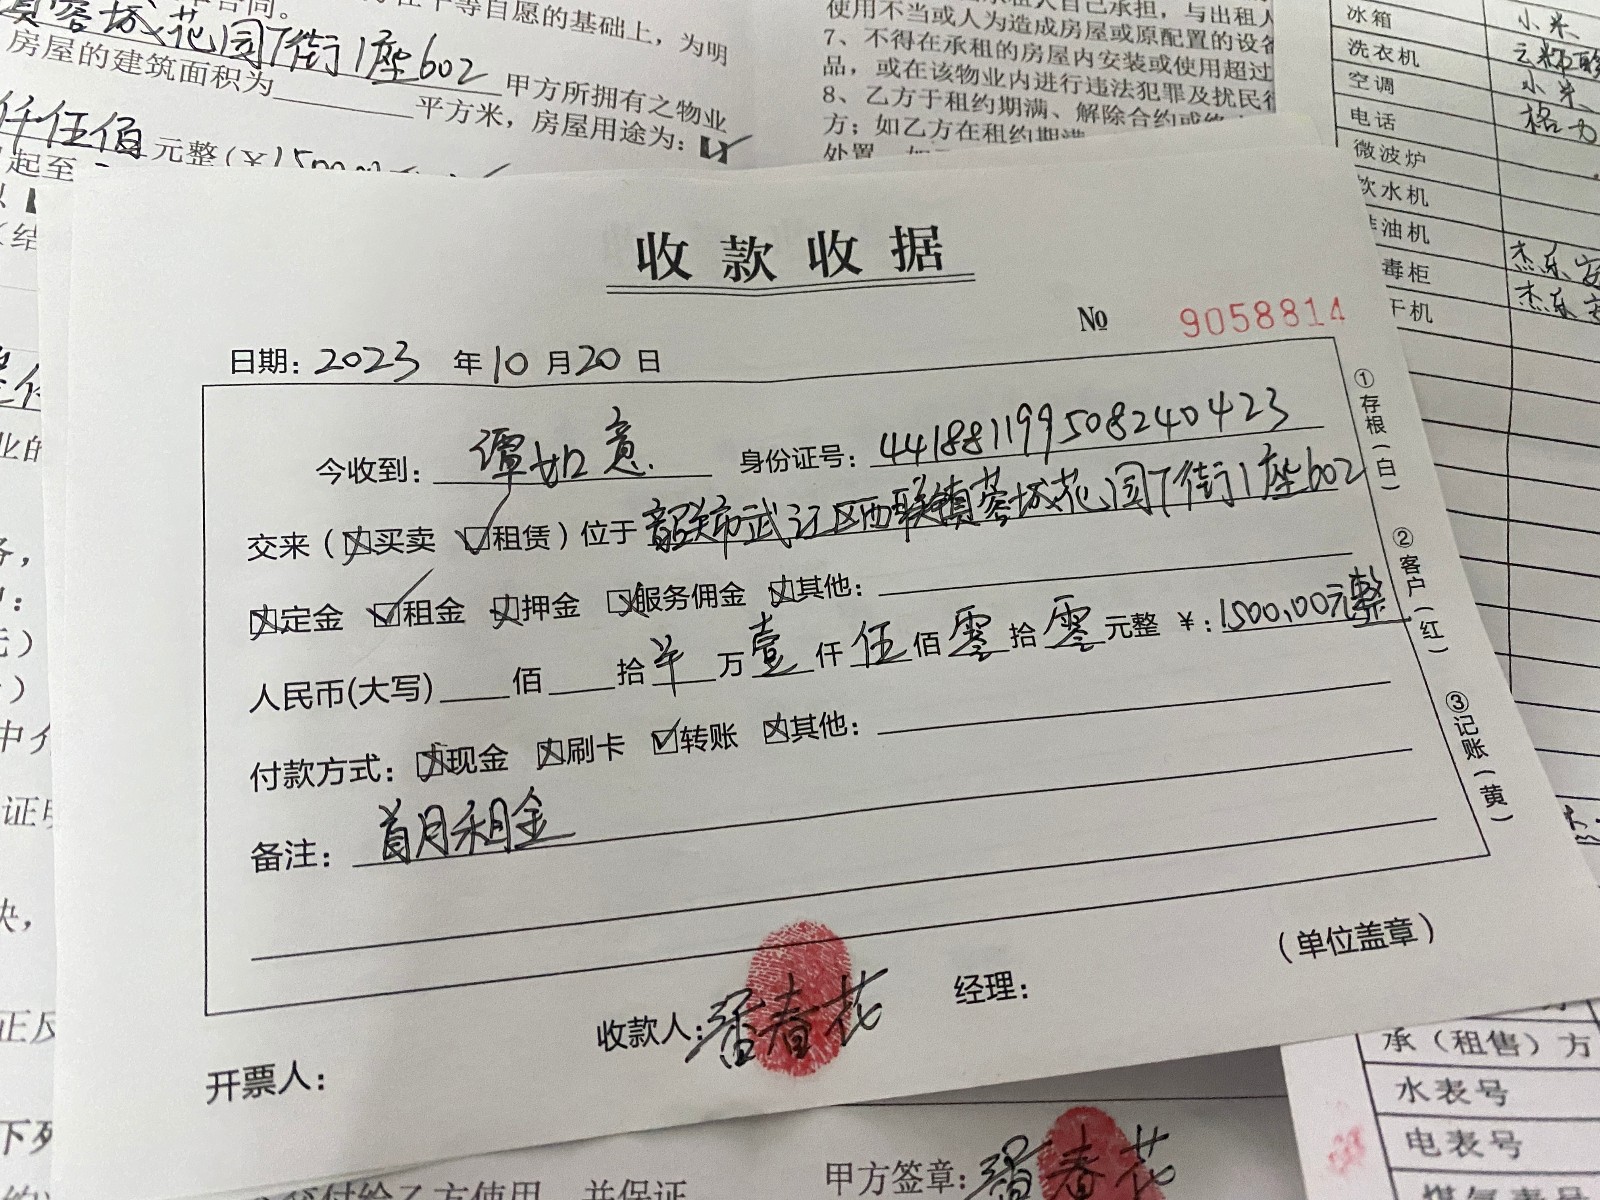 等自愿的基础上，为明
蓉城花园T街1座602
甲方所拥有之物业
房屋的建筑面积为 平方米，房屋用途为：【
仟伍佰元整（¥1500
起至
使用不当或人为造成房屋或原配置的设
7、不得在承租的房屋内安装或使用超过
品，或在该物业内进行违法犯罪及扰民
8、乙方于租约期满、解除合约或
方；如乙方在租约期满
冰箱 小米
洗衣机
空调 小米
电话 格力
微波炉
饮水机
油机
毒柜
干机
收款收据
№ 9058814
日期：2023年10月20日
今收到：谭如意 身份证号：441881199508240423
交来（☒买卖 ☑租赁）位于韶关市武江区西联镇蓉城花园T街1座602
☒定金 ☑租金 ☒押金 ☒服务佣金 ☒其他：
人民币(大写) 佰 拾 ¥ 万 壹 仟 伍 佰 零 拾 零 元整 ¥：1500.00元整
付款方式：☒现金 ☒刷卡 ☑转账 ☒其他：
备注：首月租金
①存根（白）
②客户（红）
③记账（黄）
（单位盖章）
收款人： 春花 经理：
开票人：
承（租售）方
水表号
电表号
甲方签章： 春花
付给乙方使用，并保证